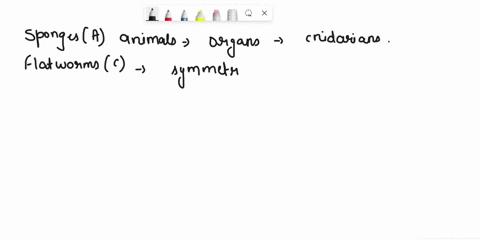 Sponges (A) animals → organs → cnidarians.
Flatworms (C) → symmetr